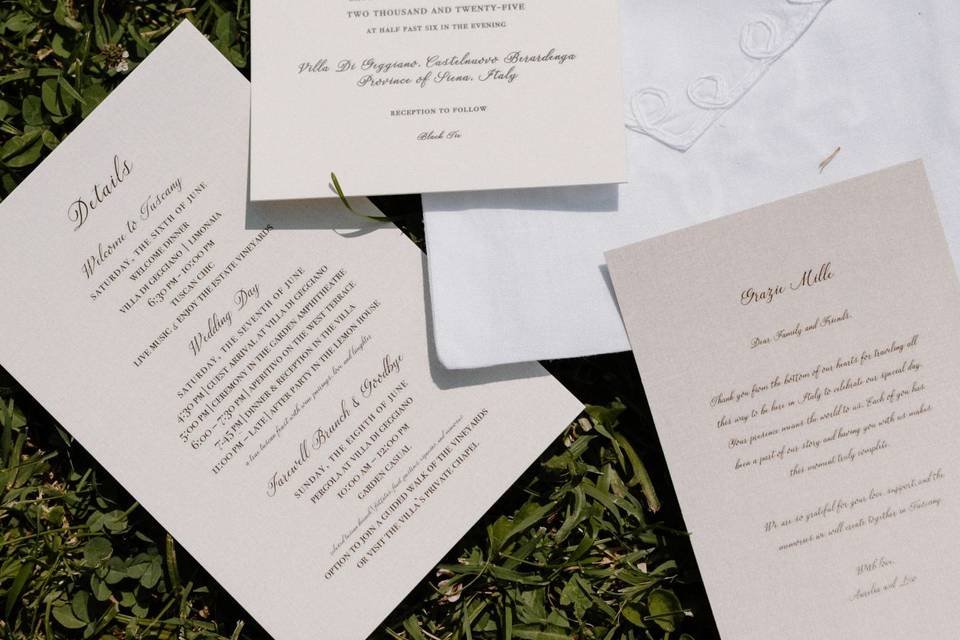 TWO THOUSAND AND TWENTY-FIVE
AT HALF PAST SIX IN THE EVENING
Villa Di Geggiano, Castelnuovo Berardenga
Province of Siena, Italy
RECEPTION TO FOLLOW
Black Tie
Details
Welcome to Tuscany
SATURDAY, THE SIXTH OF JUNE
WELCOME DINNER
VILLA DI GEGGIANO | LIMONAIA
6:30 PM – 10:00 PM
TUSCAN CHIC
LIVE MUSIC & ENJOY THE ESTATE VINEYARDS
Wedding Day
SATURDAY, THE SEVENTH OF JUNE
4:30 PM | GUEST ARRIVAL AT VILLA DI GEGGIANO
5:00 PM | CEREMONY IN THE GARDEN AMPHITHEATRE
6:00 – 7:30 PM | APERITIVO ON THE WEST TERRACE
7:45 PM | DINNER & RECEPTION IN THE VILLA
11:00 PM – LATE | AFTER PARTY IN THE LEMON HOUSE
a true tuscan feast with wine pairings, love and laughter
Farewell Brunch & Goodbye
SUNDAY, THE EIGHTH OF JUNE
PERGOLA AT VILLA DI GEGGIANO
10:00 AM – 12:00 PM
GARDEN CASUAL
relaxed tuscan brunch
OPTION TO JOIN A GUIDED WALK OF THE VINEYARDS
OR VISIT THE VILLA'S PRIVATE CHAPEL.
Grazie Mille
Dear Family and Friends,
Thank you from the bottom of our hearts for traveling all
this way to be here in Italy to celebrate our special day.
Your presence means the world to us. Each of you has
been a part of our story and having you with us makes
this moment truly complete.
We are so grateful for your love, support, and the
memories we will create together in Tuscany.
With love,
Aurelia and